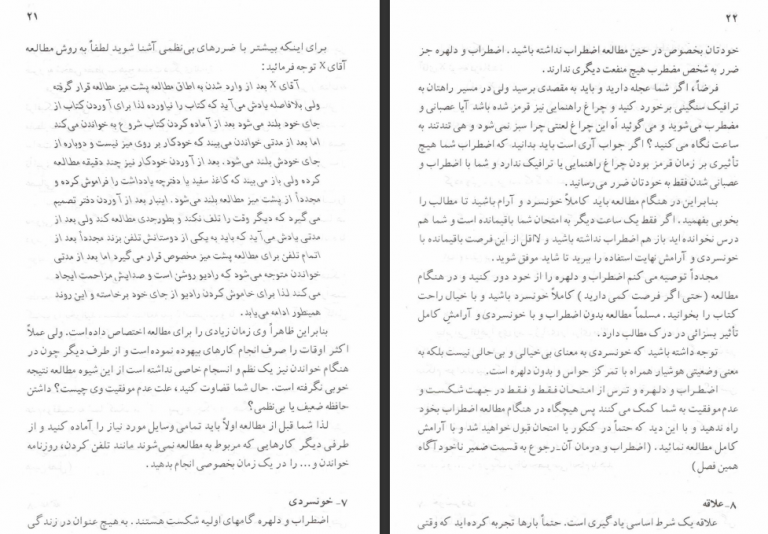 ۲۱
برای اینکه بیشتر با ضررهای بی‌نظمی آشنا شوید لطفاً به روش مطالعه
آقای X توجه فرمائید:
آقای X بعد از وارد شدن به اطاق مطالعه پشت میز مطالعه قرار گرفته
ولی بلافاصله یادش می‌آید که کتاب را نیاورده لذا برای آوردن کتاب از
جای خود بلند می‌شود بعد از آماده کردن کتاب شروع به خواندن می‌کند
اما بعد از مدتی خواندن می‌بیند که خودکار بر روی میز نیست و دوباره از
جای خودش بلند می‌شود. بعد از آوردن خودکار نیز چند دقیقه مطالعه
کرده ولی باز می‌بیند که کاغذ سفید یا دفترچه یادداشت را فراموش کرده و
مجدداً از پشت میز مطالعه بلند می‌شود. اینبار بعد از آوردن دفتر تصمیم
می‌گیرد که دیگر وقت را تلف نکند و بطورجدی مطالعه کند ولی بعد از
مدتی یادش می‌آید که باید به یکی از دوستانش تلفن بزند مجدداً بعد از
اتمام تلفن برای مطالعه پشت میز مخصوص قرار می‌گیرد اما بعد از مدتی
خواندن متوجه می‌شود که رادیو روشن است و صدایش مزاحمت ایجاد
می‌کند لذا برای خاموش کردن رادیو از جای خود برخاسته و این روند
همینطور ادامه می‌یابد.
بنابراین ظاهراً وی زمان زیادی را برای مطالعه اختصاص داده‌است. ولی عملاً
اکثر اوقات را صرف انجام کارهای بیهوده نموده‌است و از طرف دیگر چون در
هنگام خواندن نیز یک نظم و انسجام خاصی نداشته است از این شیوه مطالعه نتیجه
خوبی نگرفته است. حال شما قضاوت کنید، علت عدم موفقیت وی چیست؟ داشتن
حافظه ضعیف یا بی‌نظمی؟
لذا شما قبل از مطالعه اولاً باید تمامی وسایل مورد نیاز را آماده کنید و از
طرفی دیگر کارهایی که مربوط به مطالعه نمی‌شوند مانند تلفن کردن، روزنامه
خواندن و... را در یک زمان بخصوصی انجام بدهید.
۷ـ خونسردی
اضطراب و دلهره گامهای اولیه شکست هستند. به هیچ عنوان در زندگی
۲۲
خودتان بخصوص در حین مطالعه اضطراب نداشته باشید. اضطراب و دلهره جز
ضرر به شخص مضطرب هیچ منفعت دیگری ندارند.
فرضاً، اگر شما عجله دارید و باید به مقصدی برسید ولی در مسیر راهتان به
ترافیک سنگینی برخورد کنید و چراغ راهنمایی نیز قرمز شده باشد آیا عصبانی و
مضطرب می‌شوید و می‌گوئید آه این چراغ لعنتی چرا سبز نمی‌شود و هی تندتند به
ساعت نگاه می‌کنید؟ اگر جواب آری است باید بدانید که اضطراب شما هیچ
تأثیری بر زمان قرمز بودن چراغ راهنمایی یا ترافیک ندارد و شما با اضطراب و
عصبانی شدن فقط به خودتان ضرر می‌رسانید.
بنابراین در هنگام مطالعه باید کاملاً خونسرد و آرام باشید تا مطالب را
بخوبی بفهمید. اگر فقط یک ساعت دیگر به امتحان شما باقیمانده است و شما هم
درس نخوانده اید باز هم اضطراب نداشته باشید و لااقل از این فرصت باقیمانده با
خونسردی و آرامش نهایت استفاده را ببرید تا شاید موفق شوید.
مجدداً توصیه می‌کنم اضطراب و دلهره را از خود دور کنید و در هنگام
مطالعه (حتی اگر فرصت کمی دارید) کاملاً خونسرد باشید و با خیال راحت
کتاب را بخوانید. مسلماً مطالعه بدون اضطراب و با خونسردی و آرامش کامل
تأثیر بسزائی در درک مطالب دارد.
توجه داشته باشید که خونسردی به معنای بی‌خیالی و بی‌حالی نیست بلکه به
معنی وضعیتی هوشیار همراه با تمرکز حواس و بدون دلهره است.
اضطراب و دلهره و ترس از امتحان فقط و فقط در جهت شکست و
عدم موفقیت به شما کمک می کنند پس هیچگاه در هنگام مطالعه اضطراب بخود
راه ندهید و با این دید که حتماً در کنکور یا امتحان قبول خواهید شد و با آرامش
کامل مطالعه نمائید. (اضطراب و درمان آن ـ رجوع به قسمت ضمیر ناخود آگاه
همین فصل)
۸ـ علاقه
علاقه یک شرط اساسی یادگیری است. حتماً بارها تجربه کرده‌اید که وقتی